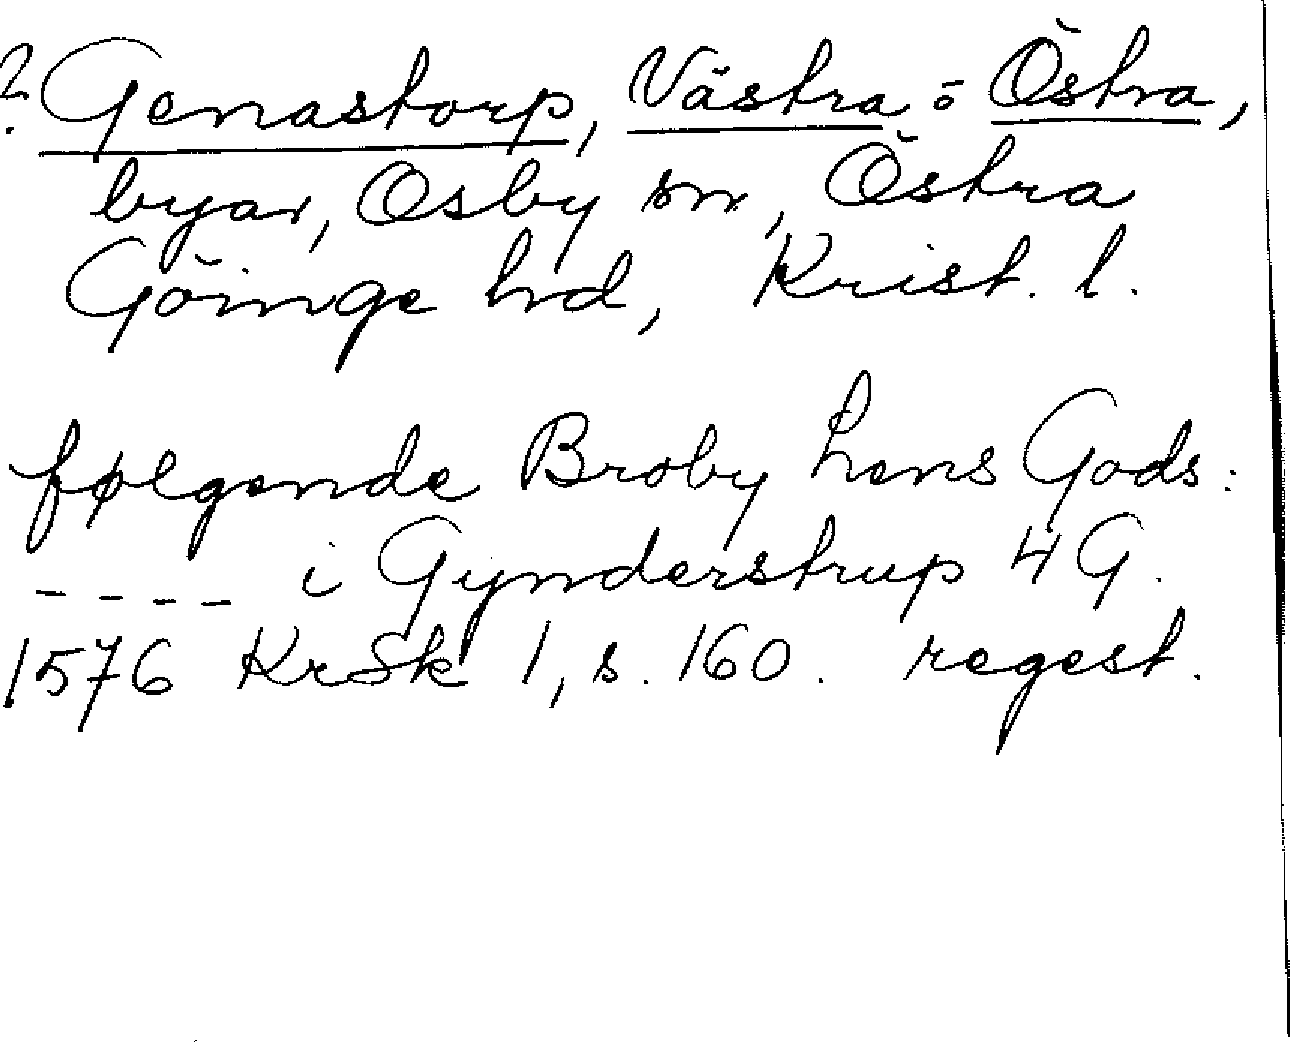 ? Genastorp, Västra o Östra,
byar, Osby sn, Östra
Göinge hd, Krist. l.
følgende Broby Lens Gods:
---- i Gynderstrup 4 G.
1576 KrSk 1, s. 160. regest.